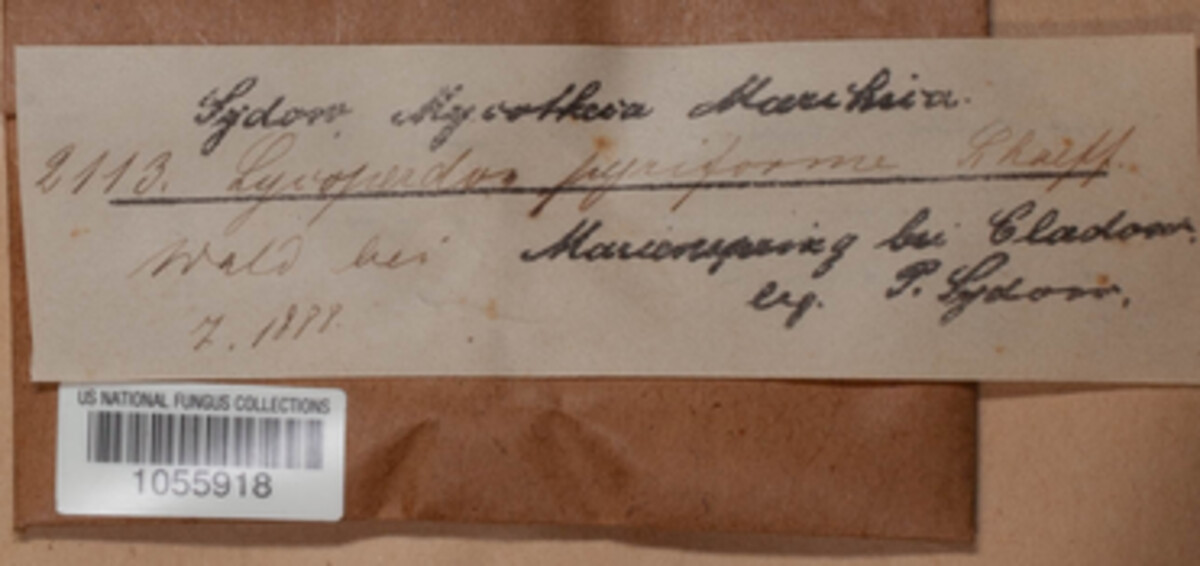 Sydow, Mycotheca Marchica.
2113. Lycoperdon pyriforme Schaeff.
Wald bei Marienspring bei Cladow.
leg. P. Sydow.
7. 1888.
US NATIONAL FUNGUS COLLECTIONS
1055918